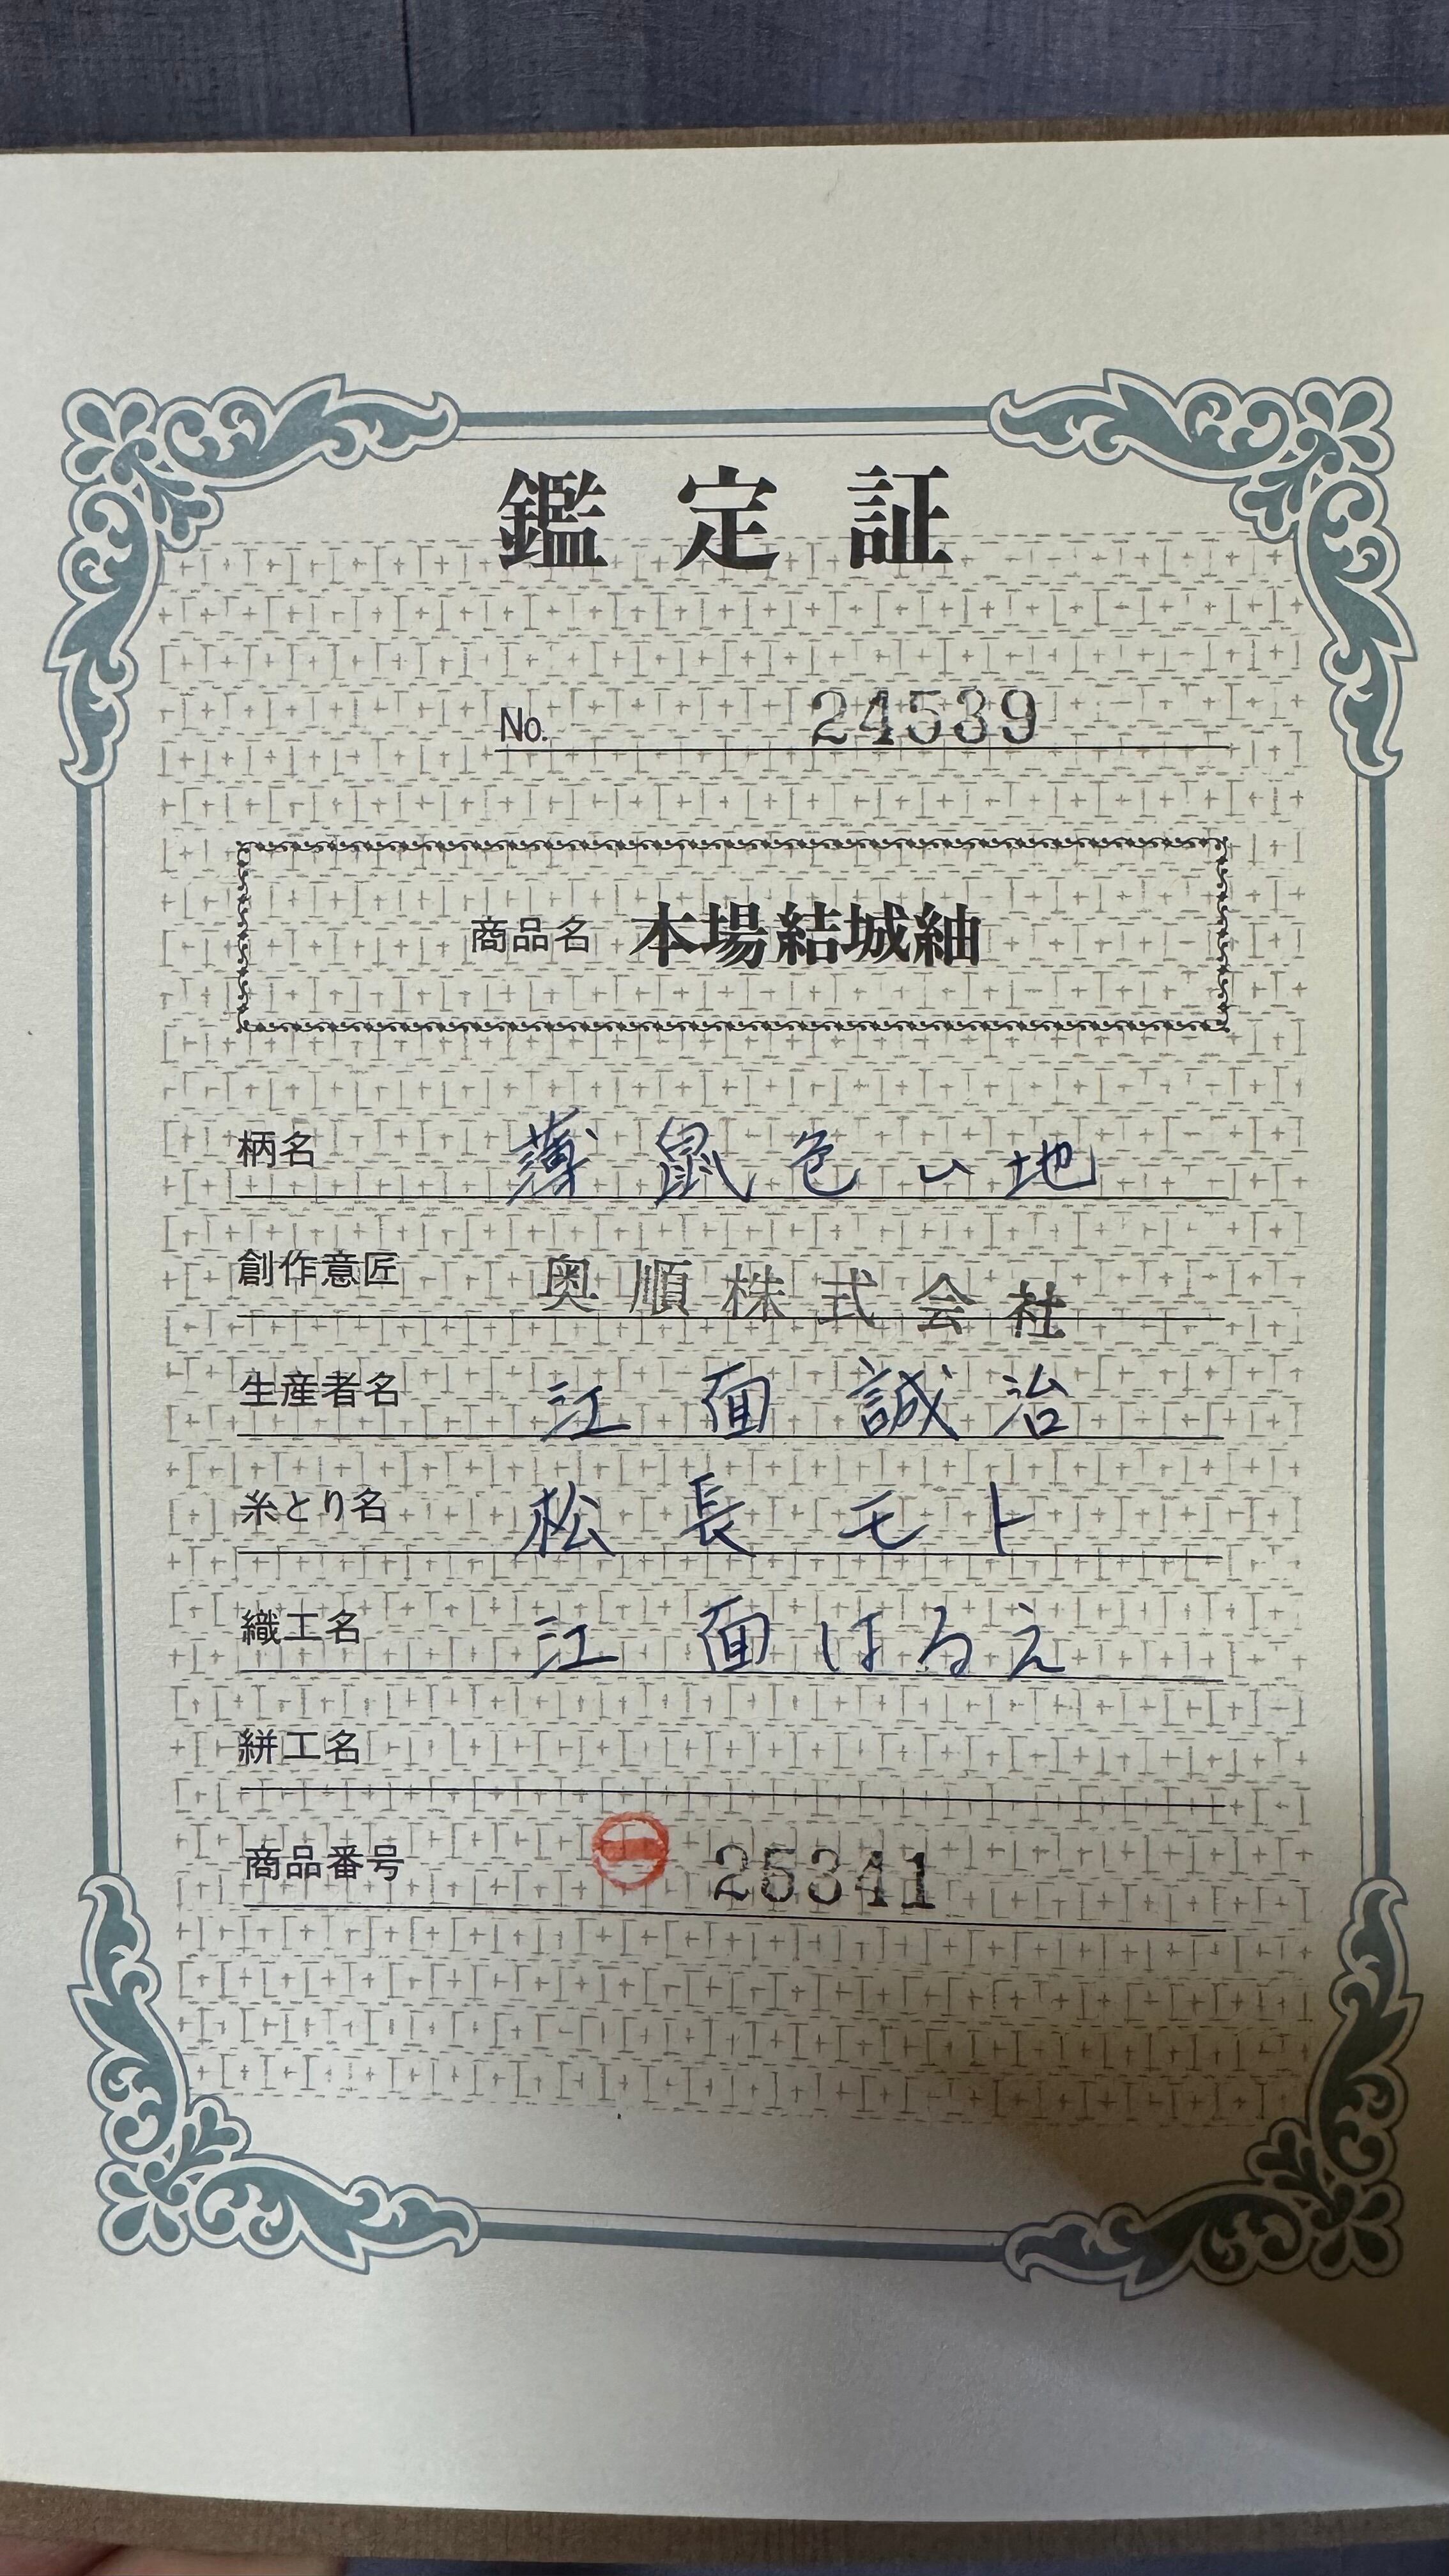 鑑定証
No. 24539
商品名 本場結城紬
柄名 薄鼠色ム地
創作意匠 奥順株式会社
生産者名 江面誠治
糸とり名 松長モト
織工名 江面はるえ
絣工名
商品番号 ㊀ 25341